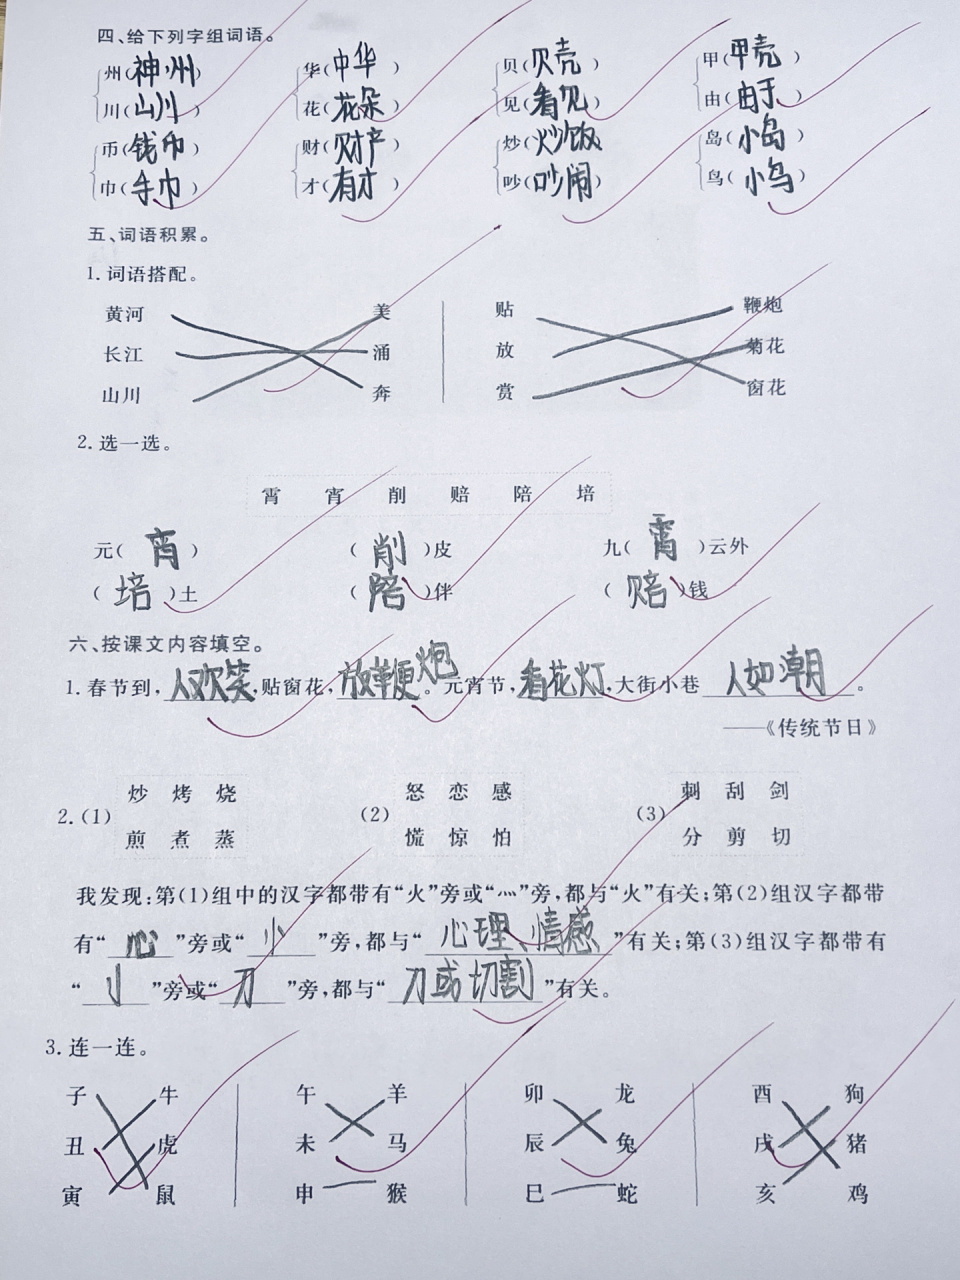 四、给下列字组词语。
州(神州) 华(中华) 贝(贝壳) 甲(甲壳)
川(山川) 花(花朵) 见(看见) 由(由于)
币(钱币) 财(财产) 炒(炒饭) 岛(小岛)
巾(手巾) 才(有才) 吵(吵闹) 鸟(小鸟)
五、词语积累。
1.词语搭配。
黄河 美 贴 鞭炮
长江 涌 放 菊花
山川 奔 赏 窗花
2.选一选。
霄 宵 削 赔 陪 培
元(宵) (削)皮 九(霄)云外
(培)土 (陪)伴 (赔)钱
六、按课文内容填空。
1.春节到,人欢笑,贴窗花,放鞭炮。元宵节,看花灯,大街小巷人如潮。
——《传统节日》
2.(1) 炒 烤 烧 (2) 怒 恋 感 (3) 刺 刮 剑
煎 煮 蒸 慌 惊 怕 分 剪 切
我发现:第(1)组中的汉字都带有“火”旁或“灬”旁,都与“火”有关;第(2)组汉字都带
有“心”旁或“忄”旁,都与“心理、情感”有关;第(3)组汉字都带有
“刂”旁或“刀”旁,都与“刀或切割”有关。
3.连一连。
子 牛 午 羊 卯 龙 酉 狗
丑 虎 未 马 辰 兔 戌 猪
寅 鼠 申 猴 巳 蛇 亥 鸡